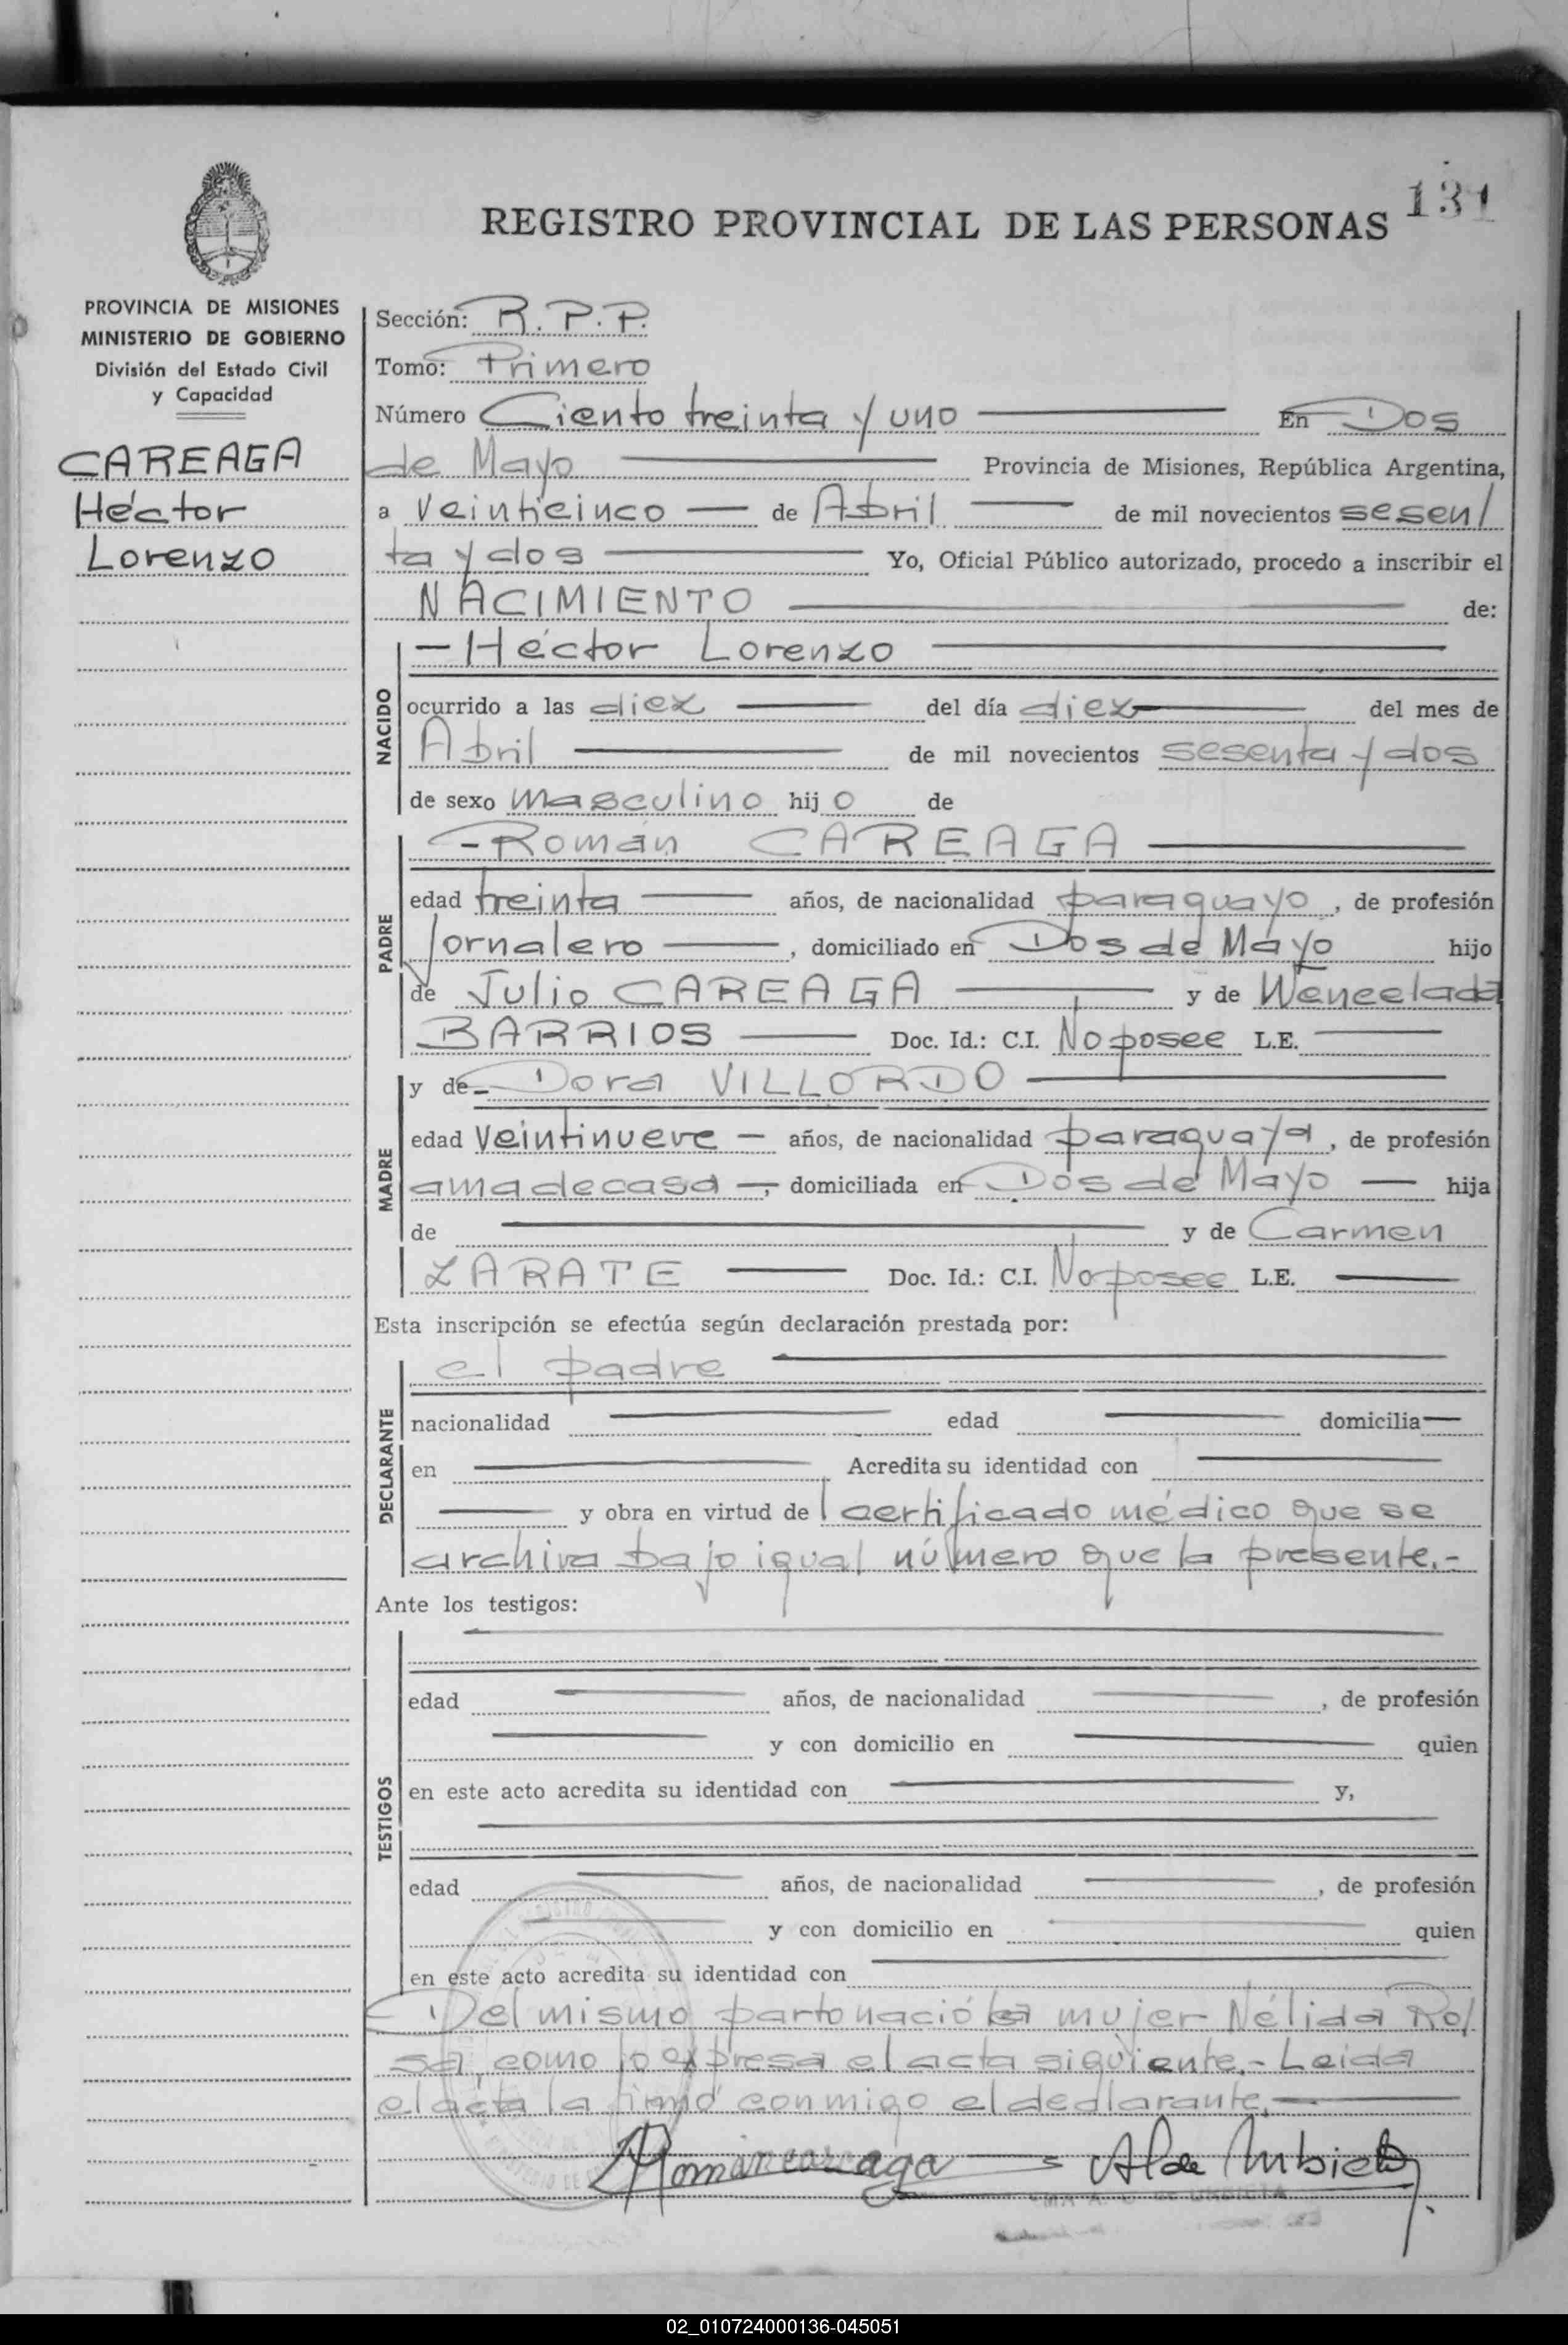 131
REGISTRO PROVINCIAL DE LAS PERSONAS
PROVINCIA DE MISIONES
MINISTERIO DE GOBIERNO
División del Estado Civil
y Capacidad
CAREAGA
Héctor
Lorenzo
Sección: R. P. P.
Tomo: Primero
Número Ciento treinta y uno En Dos
de Mayo Provincia de Misiones, República Argentina,
a veinticinco de Abril de mil novecientos sesen/
ta y dos Yo, Oficial Público autorizado, procedo a inscribir el
NACIMIENTO de:
NACIDO
- Héctor Lorenzo
ocurrido a las diez del día diez del mes de
Abril de mil novecientos sesenta y dos
de sexo masculino hijo de
PADRE
- Román CAREAGA
edad treinta años, de nacionalidad paraguayo, de profesión
jornalero, domiciliado en Dos de Mayo hijo
de Julio CAREAGA y de Wencelada
BARRIOS Doc. Id.: C.I. No posee L.E.
MADRE
y de - Dora VILLORDO
edad veintinueve años, de nacionalidad paraguaya, de profesión
ama de casa -, domiciliada en Dos de Mayo hija
de y de Carmen
ZARATE Doc. Id.: C.I. No posee L.E.
Esta inscripción se efectúa según declaración prestada por:
DECLARANTE
el padre
nacionalidad edad domicilia
en Acredita su identidad con
y obra en virtud de l certificado médico que se
archiva bajo igual número que la presente.-
Ante los testigos:
TESTIGOS
edad años, de nacionalidad , de profesión
y con domicilio en quien
en este acto acredita su identidad con y,
edad años, de nacionalidad , de profesión
y con domicilio en quien
en este acto acredita su identidad con
Del mismo parto nació la mujer Nélida Ro/
sa, como lo expresa el acta siguiente.- Leida
el acta la firmó conmigo el declarante.
Roman careaga A de Umbieta
02_010724000136-045051